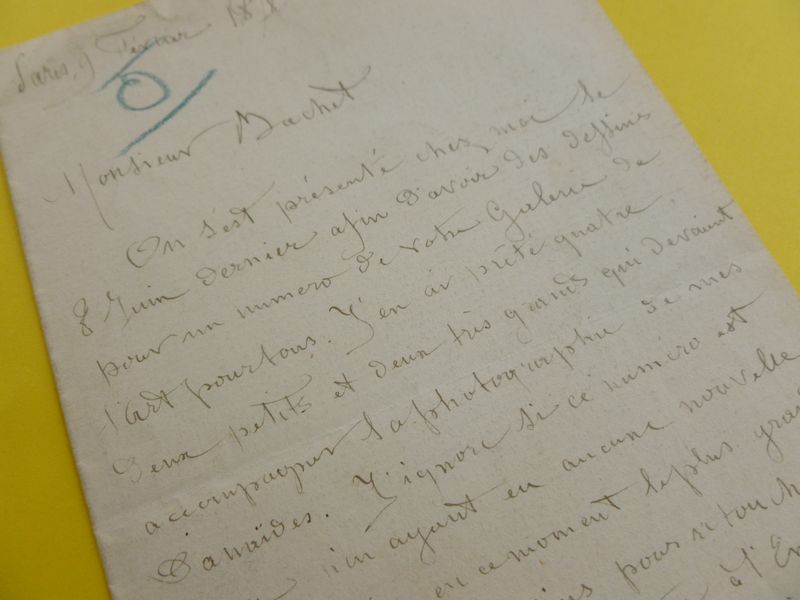 Paris, 9 Février 18
Monsieur Bachet
On s'est présenté chez moi le
8 Juin dernier afin d'avoir des dessins
pour un numero de votre Galerie de
l'art pour tous. J'en ai prêté quatre,
deux petits et deux très grands qui devaient
accompagner la photographie de mes
Danaïdes. J'ignore si ce numéro est
n'en ayant eu aucune nouvelle
en ce moment le plus gra
pour retouch
à l'E